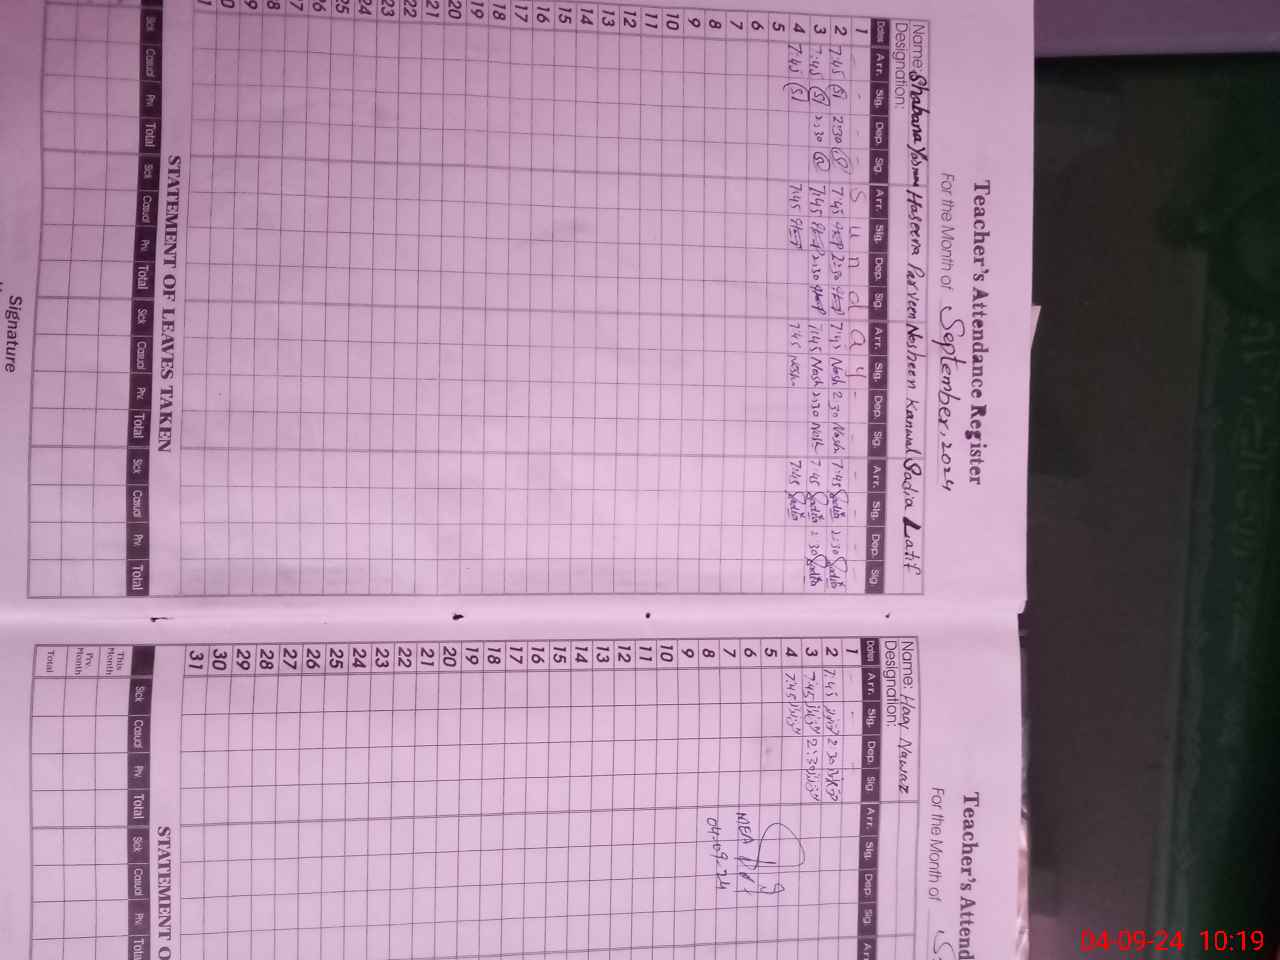 Teacher's Attendance Register
For the Month of September, 2024
Name: Shabana Yasmin Haseena Parveen Nosheen Kanwal Sadia Latif
Designation:
Dates Arr. Sig. Dep. Sig. Arr. Sig. Dep. Sig. Arr. Sig. Dep. Sig. Arr. Sig. Dep. Sig
1 - - - - S u n d a y - - - -
2 7:45 (S) 2:30 (S) 7:45 2:30 7:45 Nosh 2:30 Nosh 7:45 Sadia 2:30 Sadia
3 7:45 (S) 2:30 (S) 7:45 2:30 7:45 Nosh 2:30 Nosh 7:45 Sadia 2:30 Sadia
4 7:45 (S) 7:45 7:45 Nosh 7:45 Sadia
5
6
7
8
9
10
11
12
13
14
15
16
17
18
19
20
21
22
23
24
25
26
27
28
9
0
1
STATEMENT OF LEAVES TAKEN
Sick Casual Prv. Total Sick Casual Prv. Total Sick Casual Prv. Total Sick Casual Prv. Total
Signature
Teacher's Attend
For the Month of S
Name: Haq Nawaz
Designation:
Dates Arr. Sig. Dep. Sig Arr. Sig. Dep. Sig. Ar
1 - - -
2 7:45 2:30
3 7:45 2:30
4 7:45
5
6 MEA
7
8 04-09-24
9
10
11
12
13
14
15
16
17
18
19
20
21
22
23
24
25
26
27
28
29
30
31
STATEMENT O
Sick Casual Prv. Total Sick Casual Prv. Total
This Month
Prv. Month
Total
04-09-24 10:19